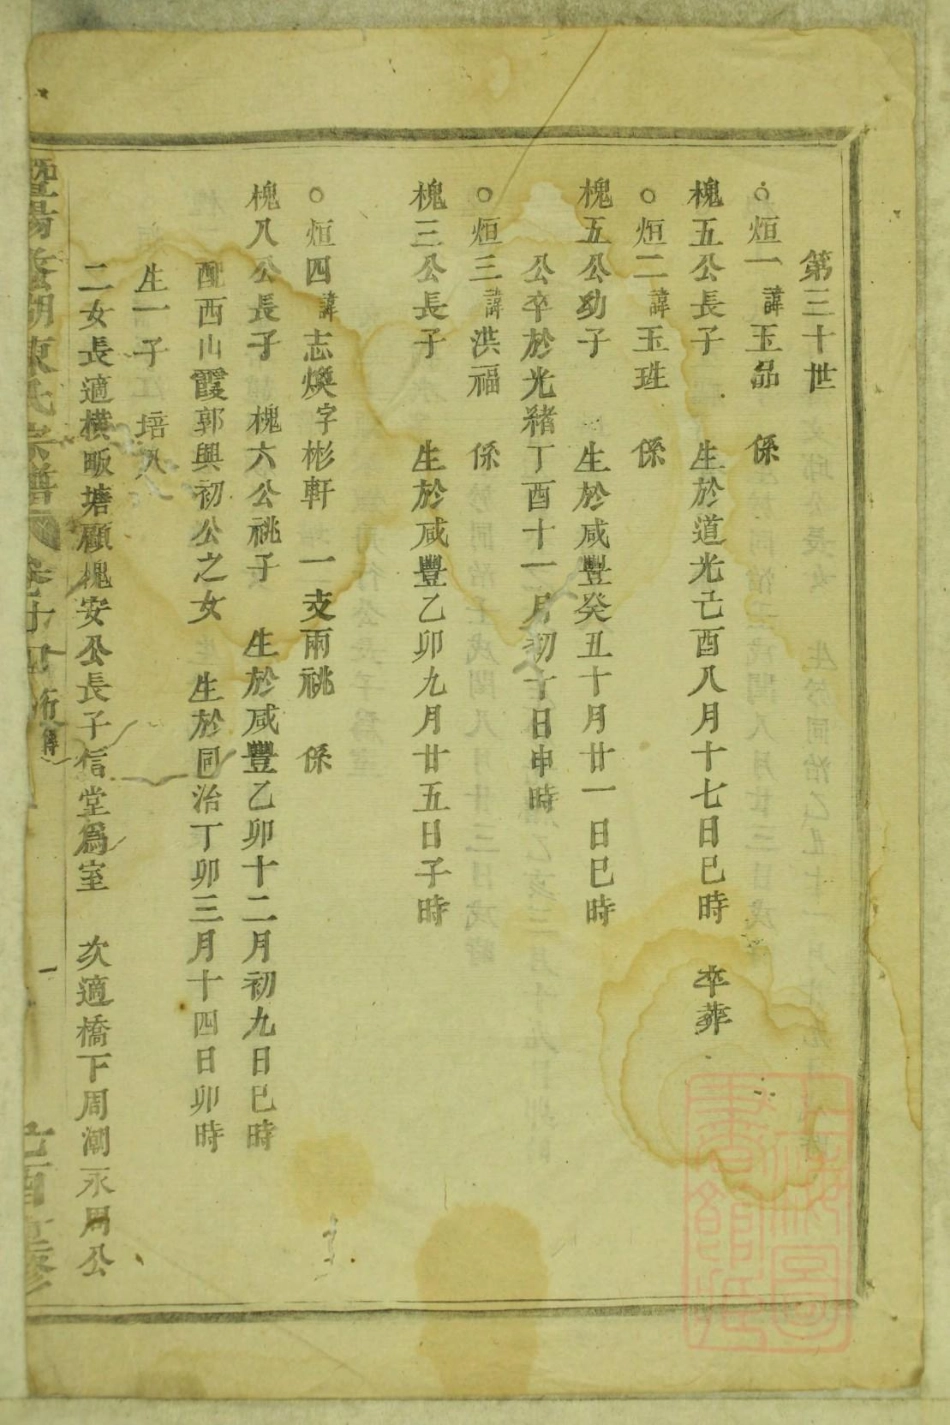 第三十世
○烜一諱玉品　係
槐五公長子　生於道光己酉八月十七日巳時　卒葬
○烜二諱玉珄　係
槐五公幼子　生於咸豐癸丑十月廿一日巳時
公卒於光緒丁酉十一月初十日申時
○烜三諱洪福　係
槐三公長子　生於咸豐乙卯九月廿五日子時
○烜四諱志煥字彬軒　一支兩祧　係
槐八公長子　槐六公祧子　生於咸豐乙卯十二月初九日巳時
配西山霞郭興初公之女　生於同治丁卯三月十四日卯時
生一子　培八
二女長適橫畈塘顧槐安公長子信堂爲室　次適橋下周潮永周公
暨陽 湖陳氏宗譜 卷十四 行傳
己酉重修